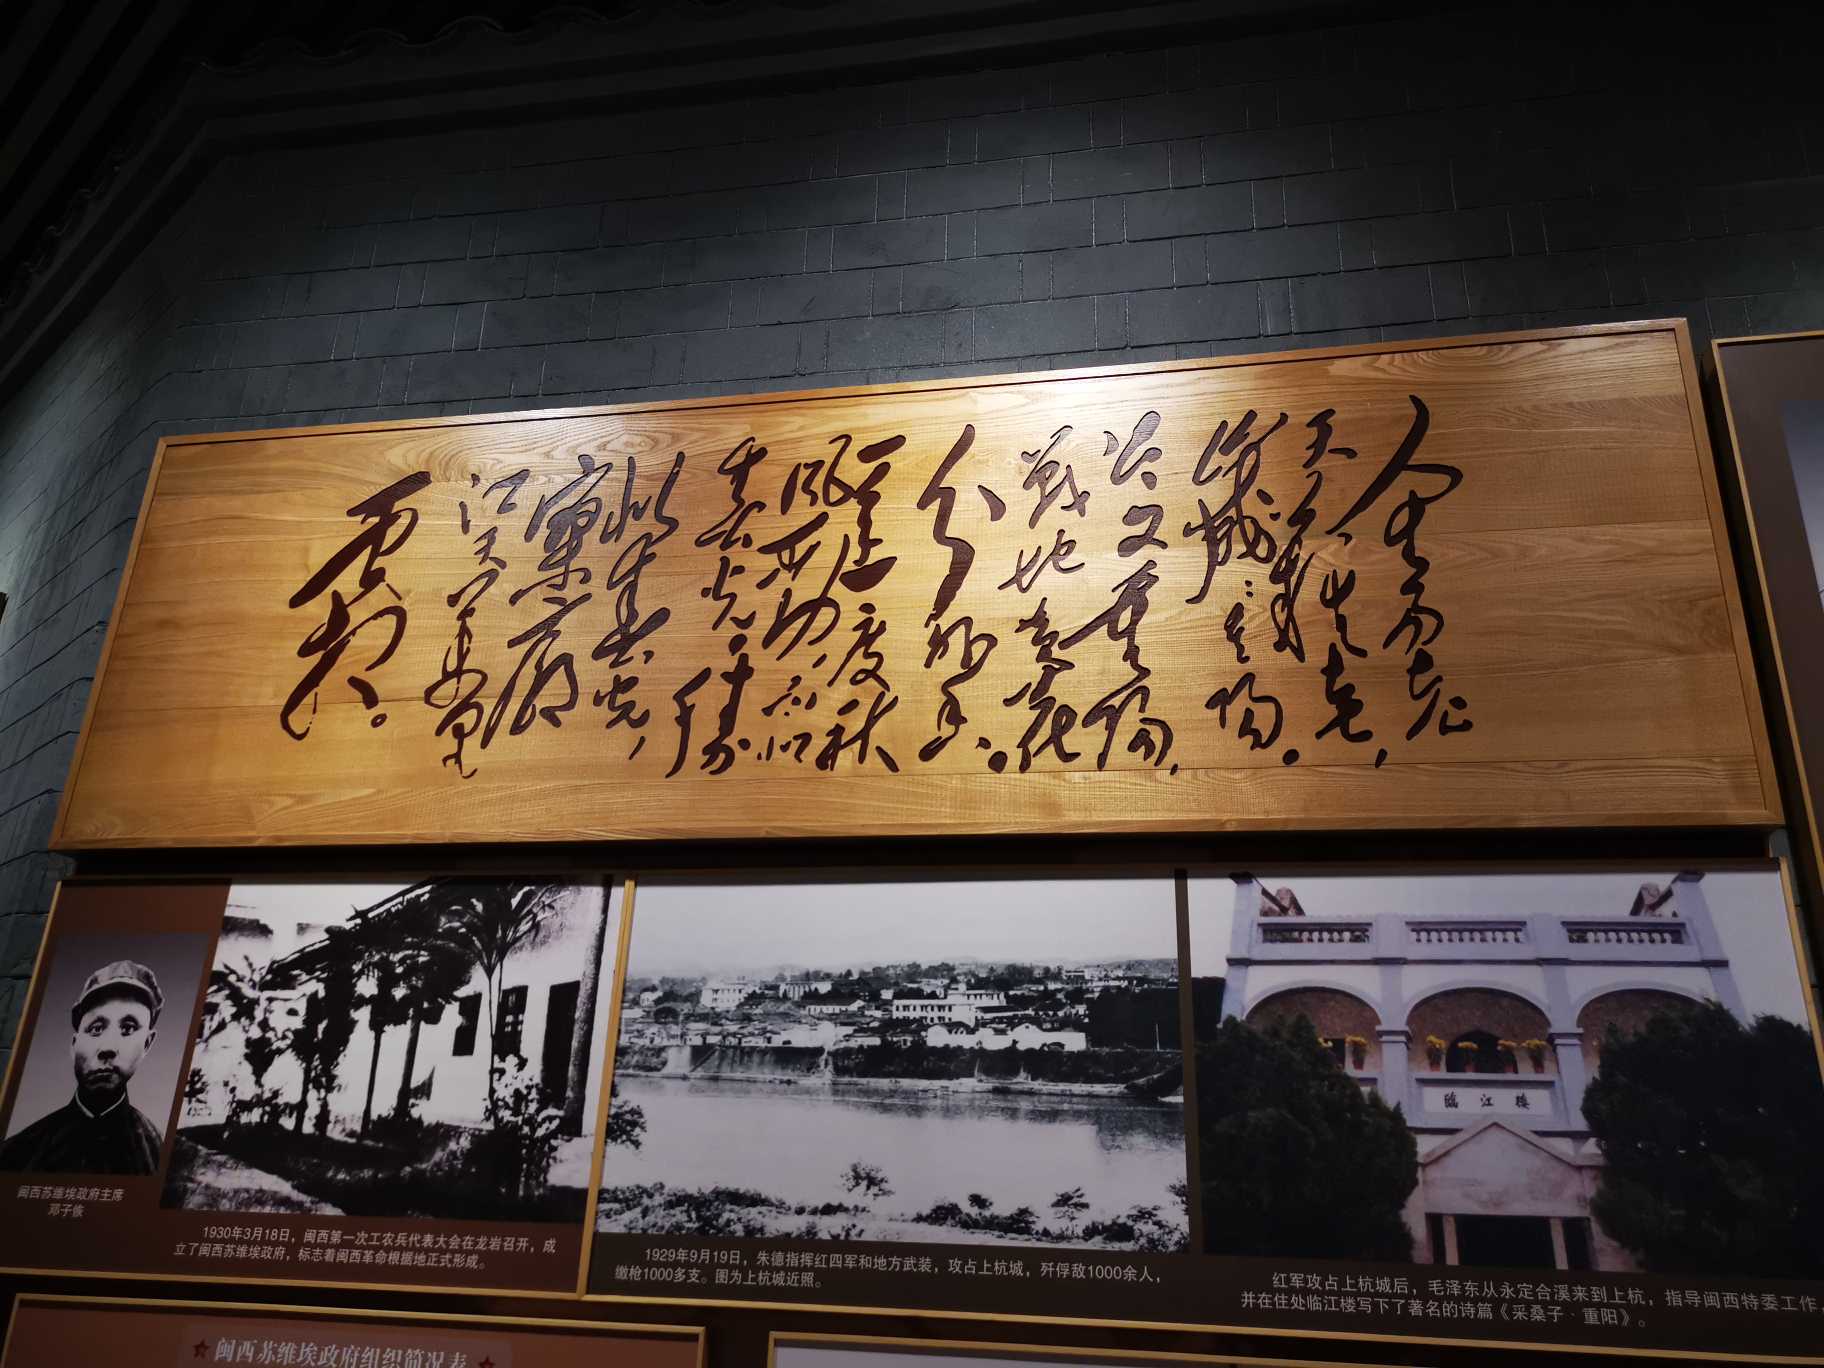 人生易老
天难老，
岁岁重阳。
今又重阳，
战地黄花
分外香。
一年一度秋
风劲，不似
春光。胜
似春光，
寥廓
江天万里
霜。
臨江楼
闽西苏维埃政府主席
邓子恢
1930年3月18日，闽西第一次工农兵代表大会在龙岩召开，成
立了闽西苏维埃政府，标志着闽西革命根据地正式形成。
1929年9月19日，朱德指挥红四军和地方武装，攻占上杭城，歼俘敌1000余人，
缴枪1000多支。图为上杭城近照。
红军攻占上杭城后，毛泽东从永定合溪来到上杭，指导闽西特委工作，
并在住处临江楼写下了著名的诗篇《采桑子·重阳》。
闽西苏维埃政府组织简况表